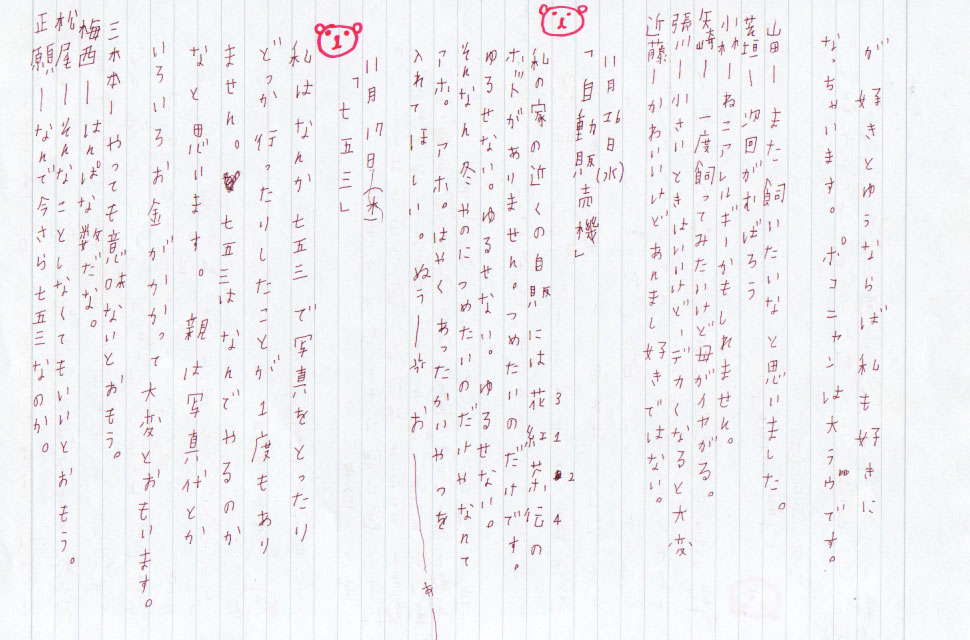 が好きとゆうならば私も好きに
なっちゃいます。ポコニャンは大ラヴです。
山田ーまた飼いたいなと思いました。
若垣ー次回がむばろう
小林ーねこアレルギーかもしれません。
矢崎ー一度飼ってみたいけど母がイヤがる。
張川ー小さいときはいいけど、デカくなると大変
近藤ーかわいいけどあんまし好きではない。
11月26日(水)
「自動販売機」
私の家の近くの自販には花紅茶伝の
3 1 2 4
ホットがありません。つめたいのだけです。
ゆるせない。ゆるせない。ゆるせない。
そんなん冬やのにつめたいのだけやなんて
アホ。アホ。はやくあったかいやつを
入れてほしい。ぬぅー お ー ぁ
11月17日(木)
「七五三」
私はなんか七五三で写真をとったり
どっか行ったりしたことが1度もあり
ません。七五三はなんでやるのか
なと思います。親は写真代とか
いろいろお金がかかって大変とおもいます。
三木本ーやっても意味ないとおもう。
梅西ーはんぱな数だな。
松尾ーそんなことしなくてもいいとおもう。
正願ーなんで今さら七五三なのか。